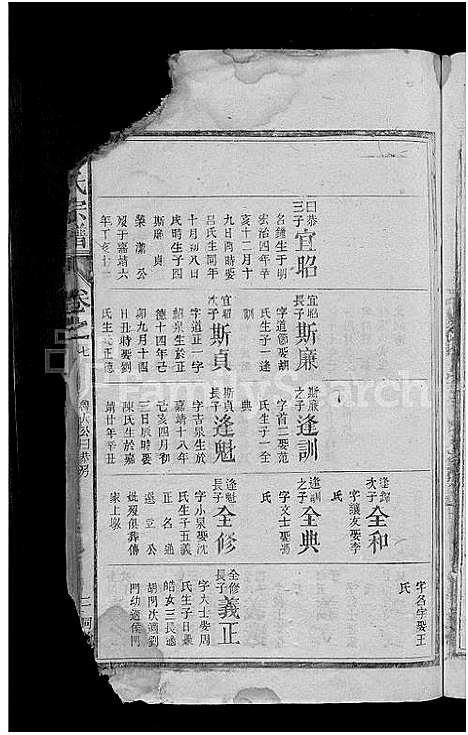 曰恭
三子
宜昭
名鍾生于明
宏治四年辛
亥十二月十
九日酉時娶
呂氏生同年
十月初八日
戌時生子四
斯廉 貞
榮 瀟 公
歿于嘉靖六
年丁亥十一
宜昭
長子
斯廉
字道節娶胡
氏生子一逢
訓
宜昭
次子
斯貞
字道正一字
紹泉生於正
德十四年己
卯九月十四
日丑時娶劉
氏生于正德
斯廉
之子
逢訓
字首二娶范
氏生子一全
典
斯貞
長子
逢魁
字古泉生於
嘉靖十八年
己亥四月初
三日辰時娶
陳氏生於嘉
靖廿年辛丑
次子
全和
字讓友娶李
氏
逢訓
之子
全典
字文士娶馮
氏
逢魁
長子
全修
字小泉娶沈
氏生子五義
正 名 通
選 立 公
妣歿俱葬傅
家上墩
字名字娶王
氏
全修
長子
義正
字大士娶周
氏生子日
皓女三長適
胡門次適劉
門幼適侯門
氏宗譜
卷之
七